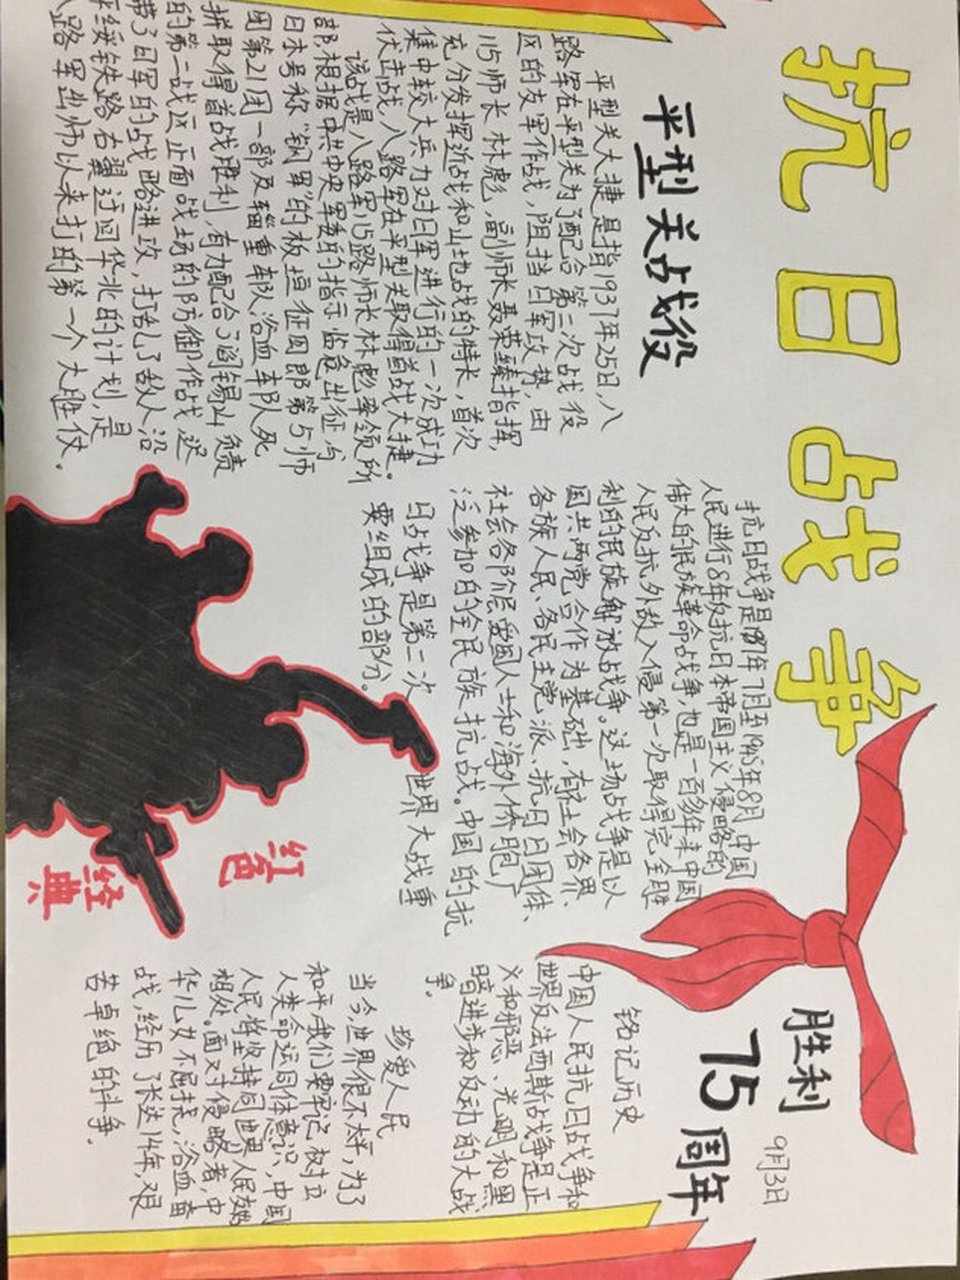 抗日战争
胜利
75
周年
9月3日
平型关战役
平型关大捷是指1937年25日,八
路军在平型关为了配合第二次战役
区的友军作战,阻挡日军攻势,由
115师长林彪,副师长聂荣臻指挥,
充分发挥近战和山地战的特长,首次
集中较大兵力对日军进行的一次成功
伏击战,八路军在平型关取得首战大捷。
该战是八路军115路师长林彪率领所
部,根据中共中央军委的指示 临危出征,与
日本号称“钢军”的板垣征四郎第5师
团第21团一部及辎重车队浴血车队死
拼取得首战胜利,有力配合了阎锡山负责
的第二战区正面战场的防御作战,迟
带了日军的战略进攻,打乱了敌人沿
平绥铁路右翼迂回华北的计划,是
八路军出师以来打的第一个大胜仗。
抗日战争是1937年7月至1945年8月中国
人民进行8年反抗日本帝国主义侵略的
伟大的民族革命战争,也是一百多年来中国
人民反抗外敌入侵第一次取得完全胜
利的民族解放战争。这场战争是以
国共两党合作为基础,有社会各界、
各族人民、各民主党派、抗日团体、
社会各阶层爱国人士和海外侨胞广
泛参加的全民族抗战。中国的抗
日战争是第二次世界大战重
要组成的部分。
红色
经典
铭记历史
中国人民抗日战争和
世界反法西斯战争是正
义和邪恶、光明和黑
暗进步和反动的大战
争。
珍爱人民
当今世界很不太平,为了
和平,我们要牢记树立
人类命运同体意识,中国
人民将坚持同世界人民友好
相处。面对侵略者,中
华儿女不屈挠,浴血奋
战,经历了长达14年,艰
苦卓绝的斗争.